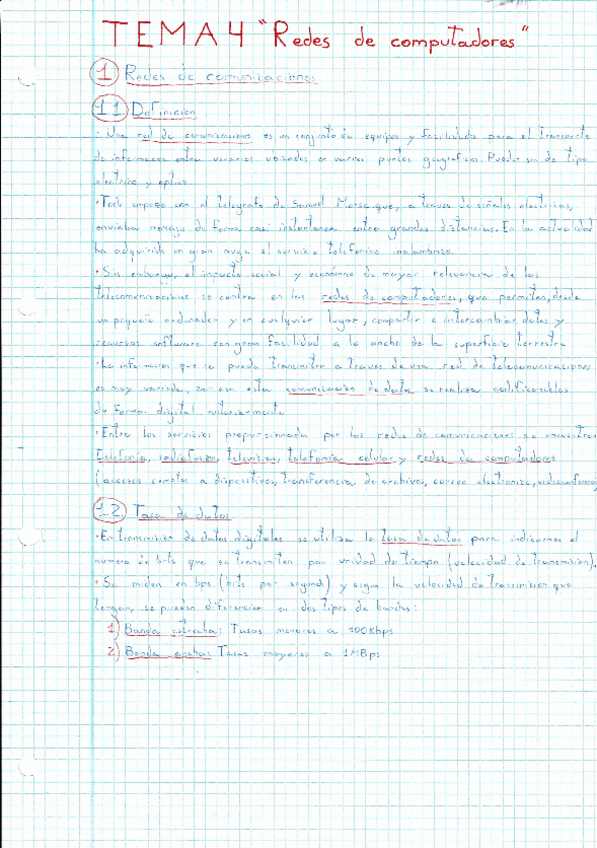 TEMA 4 "Redes de computadores"
1 Redes de comunicaciones
1.1 Definición
· Una red de comunicaciones es un conjunto de equipos y facilidades para el transporte
de información entre usuarios ubicados en varios puntos geográficos. Pueden ser de tipo
eléctrico y óptico
· Todo empezó con el telégrafo de Samuel Morse que, a través de señales eléctricas,
enviaban mensajes de forma casi instantánea entre grandes distancias. En la actualidad
ha adquirido un gran auge el servicio telefónico inalámbrico.
· Sin embargo, el impacto social y económico de mayor relevancia de las
telecomunicaciones se centra en las redes de computadores, que permiten, desde
un pequeño ordenador y en cualquier lugar, compartir e intercambiar datos y
recursos software con gran facilidad a lo ancho de la superficie terrestre
· La información que se puede transmitir a traves de una red de telecomunicaciones
es muy variada, en esta comunicación de data se realiza codificandolos
de forma digital
· Entre los servicios proporcionada por las redes de comunicaciones se encuentran
telefonía, radiofusión, television, telefonía celular y redes de computadores
(accesos remotos a dispositivos, transferencia de archivos, correo electronico, videoconferencia
1.2 Tasa de datos
· En transmisión de datos digitales se utiliza la tasa de datos para indicarnos el
numero de bits que se transmiten por unidad de tiempo (velocidad de transmisión).
· Se miden en bps (bits por segundo) y según la velocidad de transmisión que
tengan, se pueden diferenciar en dos tipos de bandas:
1) Banda estrecha: Tasas menores a 100Kbps
2) Banda ancha: Tasas mayores a 1MBps